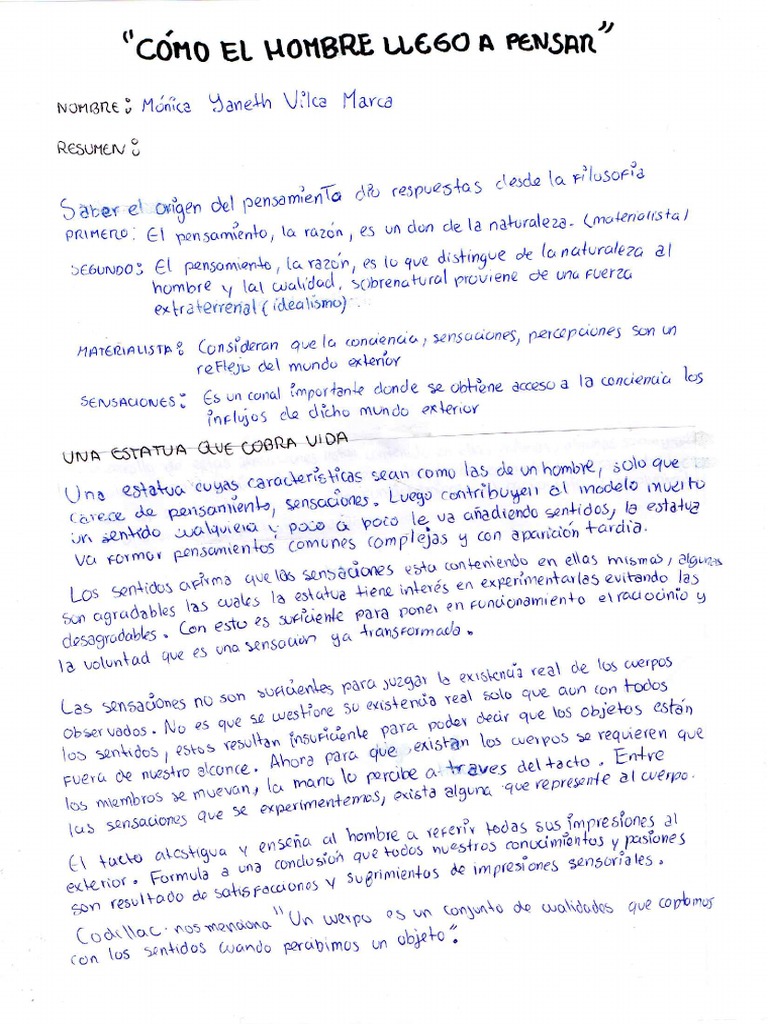 "CÓMO EL HOMBRE LLEGO A PENSAR"
NOMBRE: Mónica Yaneth Vilca Marca
RESUMEN:
Saber el origen del pensamiento dio respuestas desde la Filosofía
PRIMERO: El pensamiento, la razón, es un don de la naturaleza. (materialista)
SEGUNDO: El pensamiento, la razón, es lo que distingue de la naturaleza al
hombre y tal cualidad, sobrenatural proviene de una fuerza
extraterrenal (idealismo)
MATERIALISTA: Consideran que la conciencia, sensaciones, percepciones son un
reflejo del mundo exterior
SENSACIONES: Es un canal importante donde se obtiene acceso a la conciencia los
influjos de dicho mundo exterior
UNA ESTATUA QUE COBRA VIDA
Una estatua cuyas características sean como las de un hombre, solo que
carece de pensamiento, sensaciones. Luego contribuyen al modelo inventó
un sentido cualquiera y poco a poco le va añadiendo sentidos, la estatua
va formar pensamientos comunes complejas y con aparición tardia.
Los sentidos afirma que las sensaciones esta conteniendo en ellas mismas, algunas
son agradables las cuales la estatua tiene interés en experimentarlas evitando las
desagradables. Con esto es suficiente para poner en funcionamiento el raciocinio y
la voluntad que es una sensacion ya transformada.
Las sensaciones no son suficientes para juzgar la existencia real de los cuerpos
observados. No es que se cuestione su existencia real solo que aun con todos
los sentidos, estos resultan insuficiente para poder decir que los objetos están
fuera de nuestro alcance. Ahora para que existan los cuerpos se requieren que
los miembros se muevan, la mano lo percibe a traves del tacto. Entre
las sensaciones que se experimentemos, exista alguna que represente al cuerpo.
El tacto atestigua y enseña al hombre a referir todas sus impresiones al
exterior. Formula a una conclusión que todos nuestros conocimientos y pasiones
son resultado de satisfacciones y sufrimientos de impresiones sensoriales.
Codillac nos menciona "Un cuerpo es un conjunto de cualidades que captamos
con los sentidos cuando percibimos un objeto".